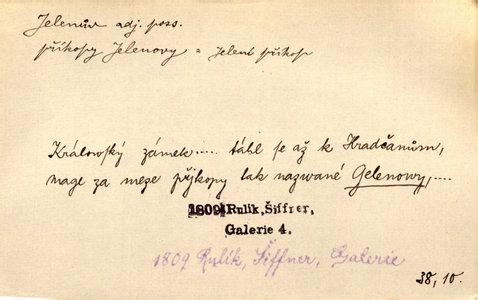 Jelenův adj. poss.
příkopy Jelenovy = Jelení příkop
Králowský zámek.... táhl se až k Hradčanům,
mage za meze přjkopy tak nazwané Gelenowy,....
1809 Rulík, Šiffner,
Galerie 4.
1809 Rulík, Šiffner, Galerie
38, 10.